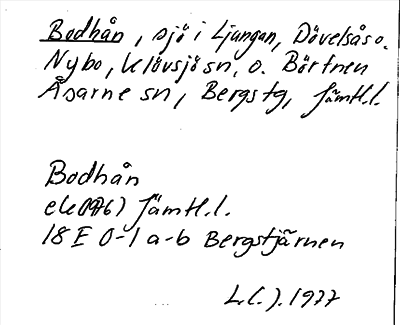 Bodhån, sjö i Ljungan, Dövelsås o.
Nybo, Klövsjö sn, o. Börtnen
Åsarne sn, Bergs tg, Jämtl.l.
Bodhån
ek (1976) Jämtl.l.
18 E 0-1 a-b Bergstjärnen
1977